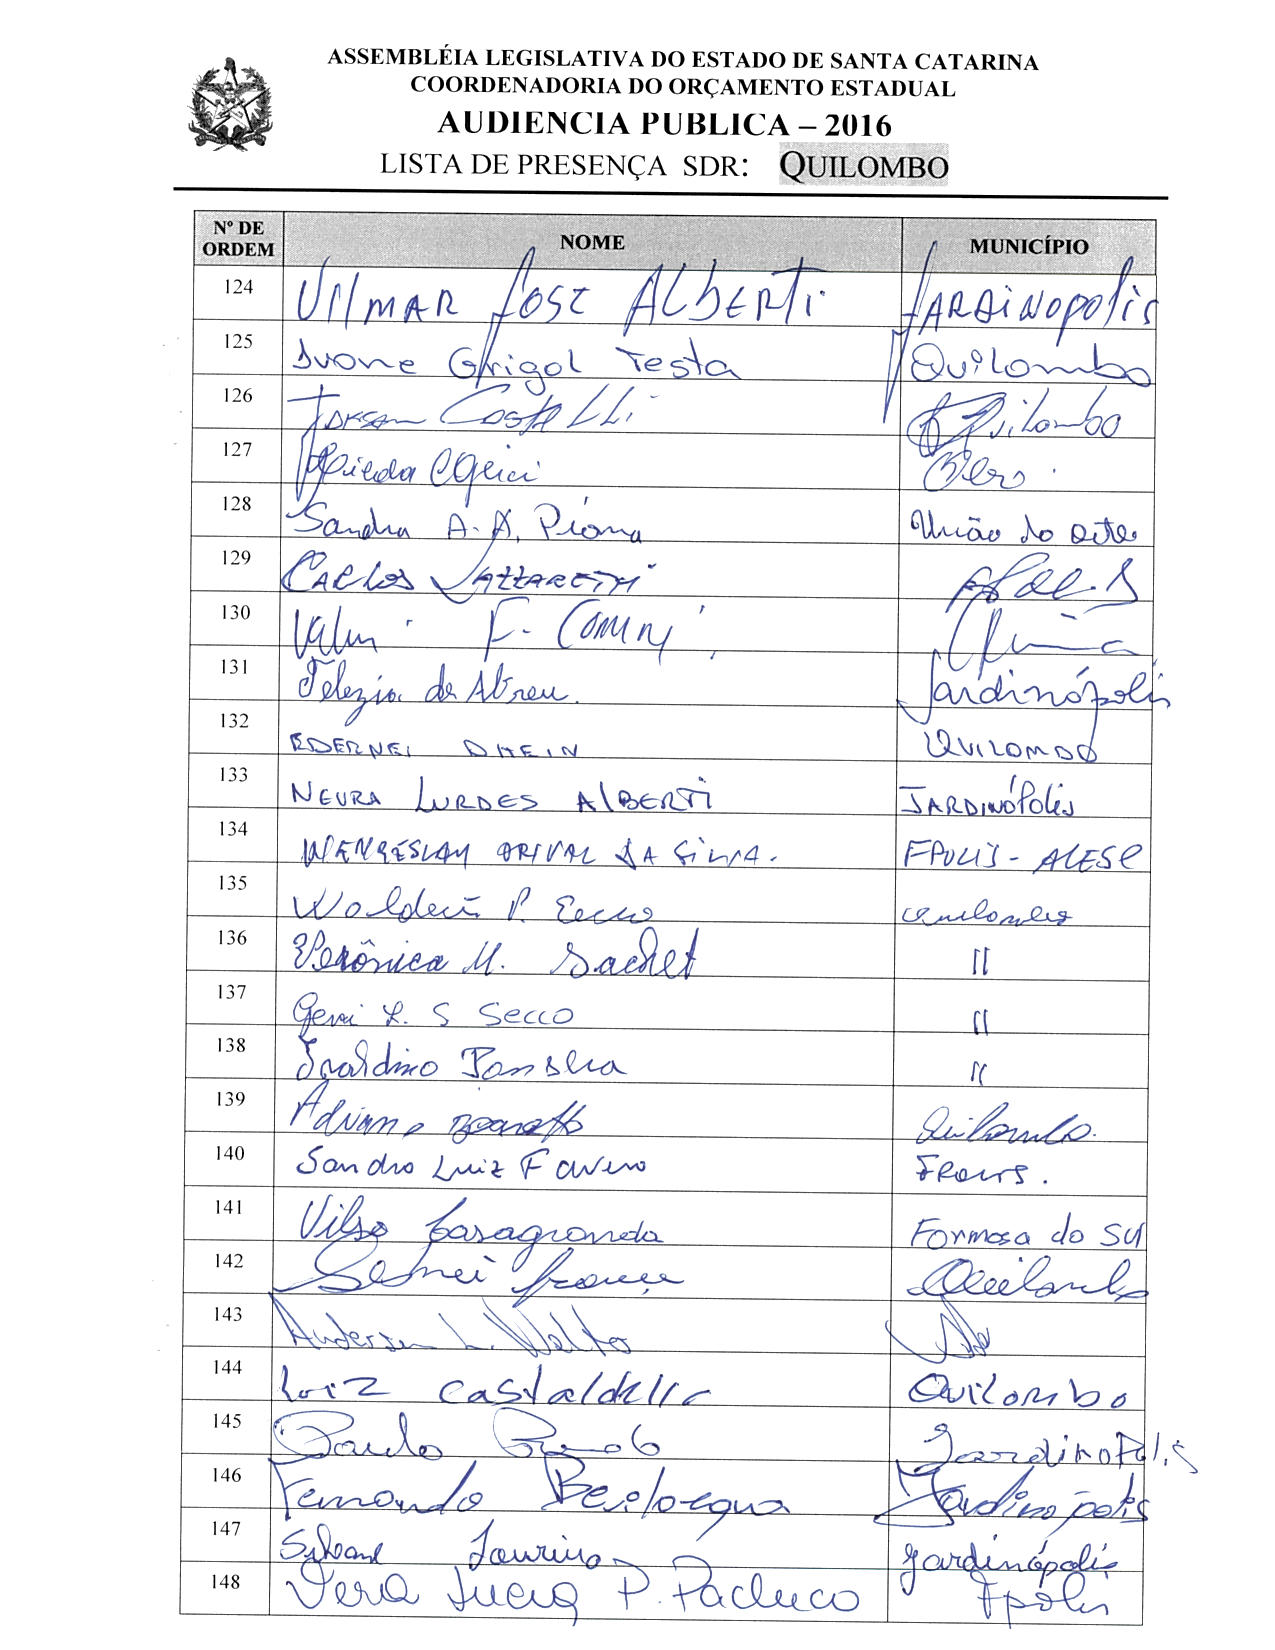 ASSEMBLÉIA LEGISLATIVA DO ESTADO DE SANTA CATARINA
COORDENADORIA DO ORÇAMENTO ESTADUAL
AUDIENCIA PUBLICA – 2016
LISTA DE PRESENÇA SDR: QUILOMBO
Nº DE ORDEM NOME MUNICÍPIO
124 VILMAR JOSE ALBERTI JARDINOPOLIS
125 Ivone Grigol Testa Quilombo
126 Quilombo
127
128 Sandra A. A. Piana União do Oeste
129 CARLOS
130 F.
131 de Abreu. Jardinópolis
132 EDERNEI DHEIN QUILOMBO
133 NEURA LURDES ALBERTI JARDINÓPOLIS
134 WENCESLAU ORIVAL DA SILVA. FPOLIS - ALESC
135 P. Secco Quilombo
136 Verônica M. Sachet "
137 Geni L. S Secco "
138 "
139 Quilombo.
140 Sandro Luiz Favero FPOLIS.
141 Vilso Casagranda Formosa do Sul
142 Quilombo
143 Anderson L.
144 Luiz Castaldello Quilombo
145 Paulo Jardinopolis
146 Fernando Bevilacqua Jardinópolis
147 Jardinópolis
148 Vera Lucia P. Pacheco Fpolis